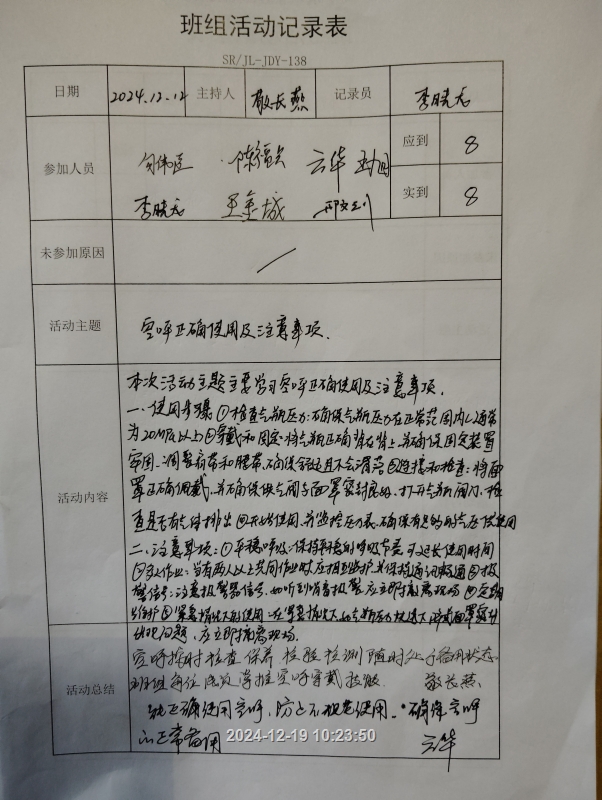 班组活动记录表
SR/JL-JDY-138
日期 2024.12.12 主持人 敬长燕 记录员 李晓龙
参加人员 云华 应到 8
李晓龙 王金城 实到 8
未参加原因 /
活动主题 空呼正确使用及注意事项.
活动内容
本次活动主题主要学习空呼正确使用及注意事项.
一、使用步骤①检查气瓶压力:确保气瓶压力在正常范围内(通常
为20MPa以上②穿戴和固定:将气瓶正确背在背上,并确保固定装置
牢固.调整肩带和腰带,确保舒适且不会滑落③连接和检查:将面
罩正确佩戴,并确保供气阀与面罩密封良好,打开气瓶阀门,检
查是否有气体排出④开始使用,并监控压力表,确保有足够的气压供使用
二、注意事项:①平稳呼吸:保持平稳的呼吸节奏,可延长使用时间
②双人作业:当有两人以上共同作业时,应相互监护,并保持通讯畅通③报
警信号:注意报警器信号,如听到哨音报警,应立即撤离现场④定期
维护⑤紧急情况下的使用:在紧急情况下,如气瓶压力快速下降或面罩密封
出现问题,应立即撤离现场.
活动总结
空呼按时检查保养 检验检测 随时处于备用状态
班组每位成员掌握空呼穿戴技能. 敬长燕
能正确使用空呼,防止不规范使用.确保空呼
的正常备用 云华
2024-12-19 10:23:50